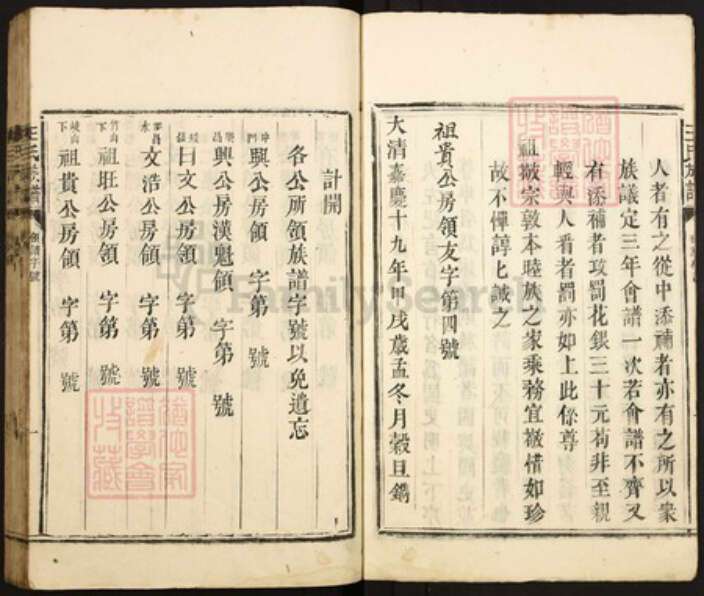 人者有之從中添補者亦有之所以衆
族議定三年會譜一次若會譜不齊又
有添補者攻罰花銀三十元茍非至親
輕與人看者罰亦如上此係尊
祖敬宗敦本睦族之家乘務宜敬惜如珍
故不憚諄諄誡之
祖貴公房領友字第四號
大清嘉慶十九年甲戌歲孟冬月穀旦鐫
計開
各公所領族譜字號以免遺忘
興公房領 字第 號
興公房漢魁領 字第 號
曰文公房領 字第 號
文浩公房領 字第 號
竹山下 祖旺公房領 字第 號
岐山下 祖貴公房領 字第 號
王氏族譜
FamilySearch